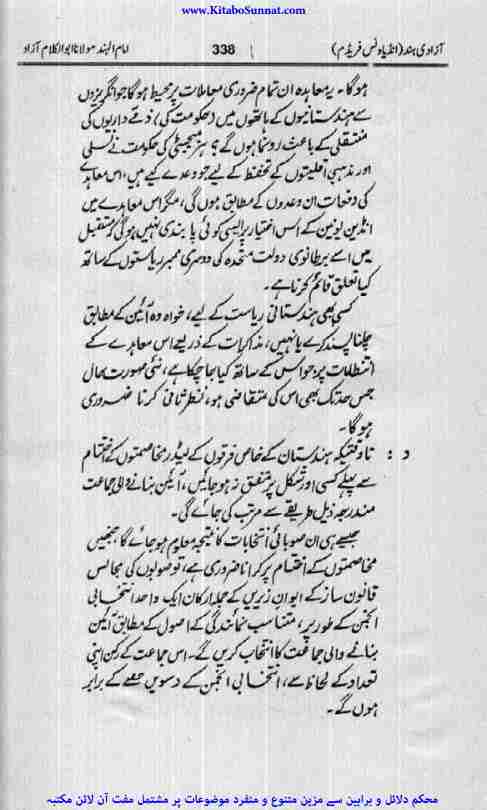 www.KitaboSunnat.com
آزادی ہند (انڈیا ونس فریڈم) 338 امام الہند مولانا ابوالکلام آزاد
ہوگا۔ یہ معاہدہ ان تمام ضروری معاملات پر محیط ہوگا جو انگریزوں
سے ہندستانیوں کے ہاتھوں میں (حکومت کی) ذمے داریوں کی
منتقلی کے باعث رونما ہوں گے؛ ہز میجسٹی کی حکومت نے نسلی
اور مذہبی اقلیتوں کے تحفظ کے لیے جو وعدے کیے ہیں، اس معاہدے
کی دفعات ان وعدوں کے مطابق ہوں گی، مگر اس معاہدے میں
انڈین یونین کے اس اختیار پر ایسی کوئی پابندی نہیں ہوگی کہ مستقبل
میں اسے برطانوی دولت متحدہ کی دوسری ممبر ریاستوں کے ساتھ
کیا تعلق قائم کرنا ہے۔
کسی بھی ہندستانی ریاست کے لیے، خواہ وہ آئین کے مطابق
چلنا پسند کرے یا نہیں، مذاکرات کے ذریعے اس معاہدے کے
انتظامات پر، جو اس کے ساتھ کیا جا چکا ہے، نئی صورت حال
جس حد تک بھی اس کی متقاضی ہو، نظر ثانی کرنا ضروری
ہوگا۔
د : تاوقتیکہ ہندستان کے خاص فرقوں کے لیڈر مخاصمتوں کے اختتام
سے پہلے کسی اور شکل پر متفق نہ ہو جائیں، آئین بنانے والی جماعت
مندرجہ ذیل طریقے سے مرتب کی جائے گی۔
جیسے ہی ان صوبائی انتخابات کا نتیجہ معلوم ہو جائے گا، جنھیں
مخاصمتوں کے اختتام پر کرانا ضروری ہے، تو صوبوں کی مجالس
قانون ساز کے ایوان زیریں کے جملہ ارکان ایک واحد انتخابی
انجمن کے طور پر، متناسب نمائندگی کے اصول کے مطابق آئین
بنانے والی جماعت کا انتخاب کریں گے۔ اس جماعت کے رکن اپنی
تعداد کے لحاظ سے، انتخابی انجمن کے دسویں حصے کے برابر
ہوں گے۔
محکم دلائل و براہین سے مزین متنوع و منفرد موضوعات پر مشتمل مفت آن لائن مکتبہ